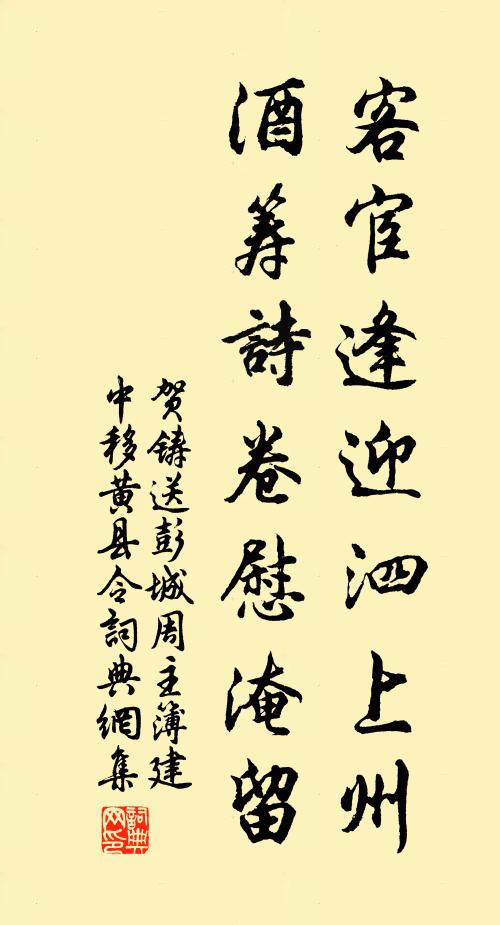 客宦逢迎泗上州
酒筹詩卷慰淹留
贺鑄送彭城周主簿建
中移黄县令詞典網集